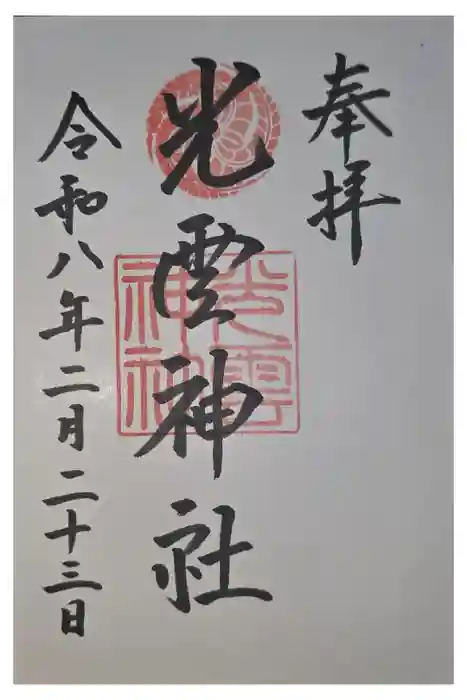 奉拝
光雲神社
令和八年二月二十三日
光雲
神社